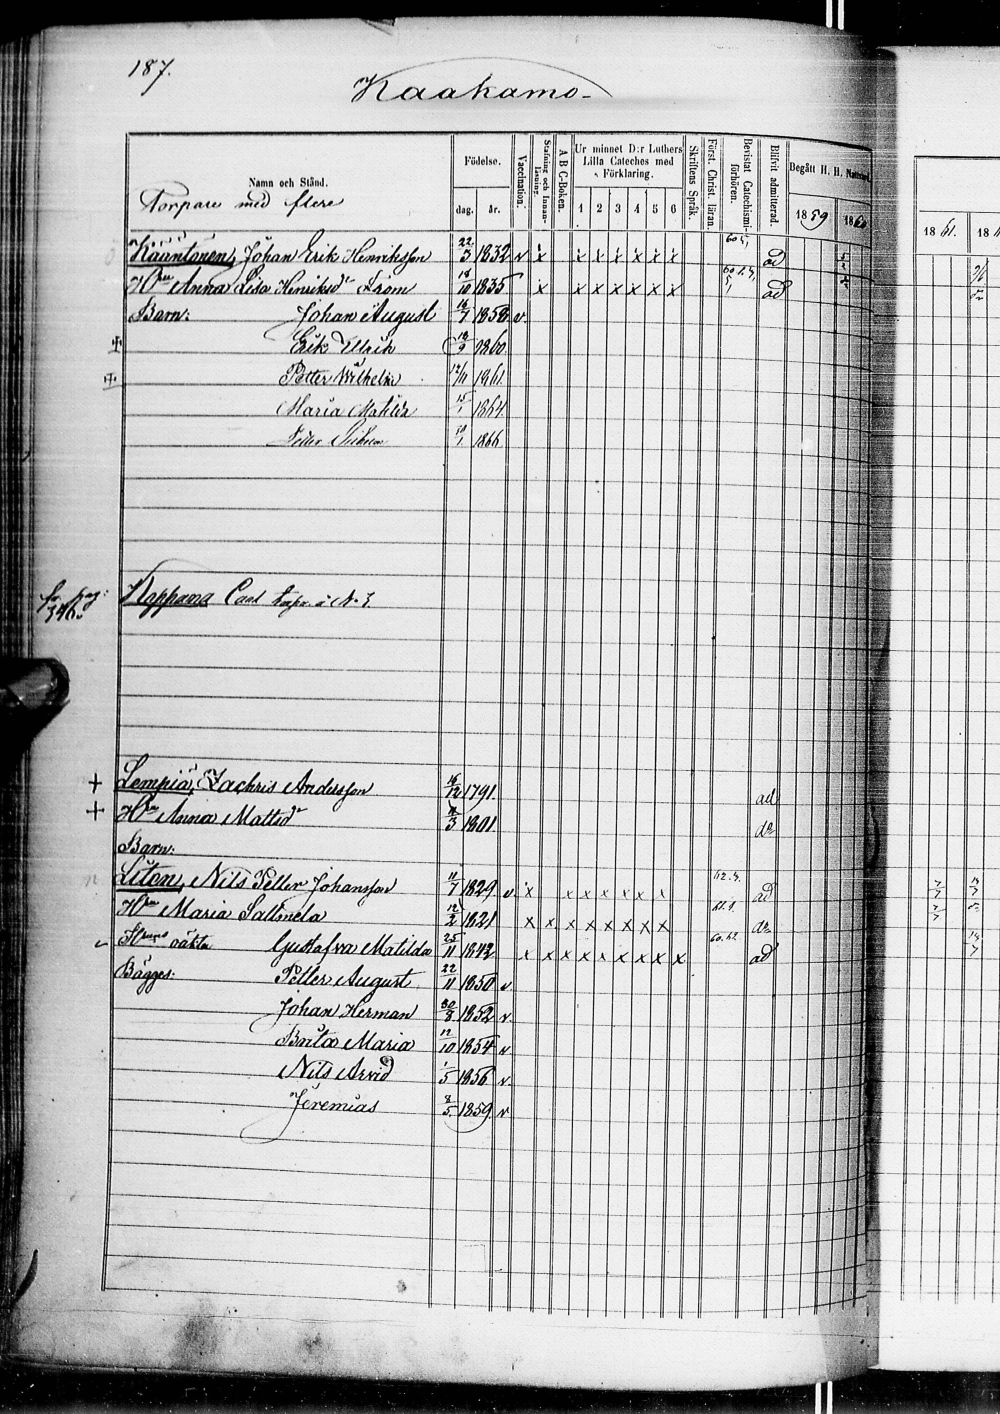 187.
Kaakamo
Namn och Stånd.
Födelse.
dag. år.
Vaccination.
Stafning och Innanläsning.
A B C-Boken.
Ur minnet D:r Luthers Lilla Cateches med Förklaring.
1 2 3 4 5 6
Skriftens Språk.
Först. Christ. läran.
Bevistat Catechismiförhören.
Blifvit admitterad.
Begått H. H. Nattvard
1859 1860
1861.
Torpare med flere
Johan Erik Henriksson 22/3 1832 v x x x x x x x ad
Hu Anna Lisa Henriksdr Ström 18/10 1835 x x x x x x x ad
Barn: Johan August 16/7 1858 v.
Erik Ulrik 18/9 1860.
Petter Wilhelm 12/11 1861.
Maria Matilda 15/1 1864
1866
fr. pag: 346.
Kappana Carl torpr å No 3.
+ Lempiä, Zachris Andersson 16/12 1791. ad
+ Hu Anna Mattsdr 3 1801. do
Barn:
Liton, Nils Petter Johansson 11/7 1829 v x x x x x x x 62.4. ad
Hu Maria Salmela 12/2 1821 x x x x x x x x do
Hans oäkta Gustafva Matilda 25/11 1842 x x x x x x x x x 60.62. ad
Bägges: Petter August 22/11 1850 v
Johan Herman 30/8 1852 v.
Brita Maria 12/10 1854 v
Nils Arvid 1/5 1856 v.
Jeremias 8/5. 1859 v